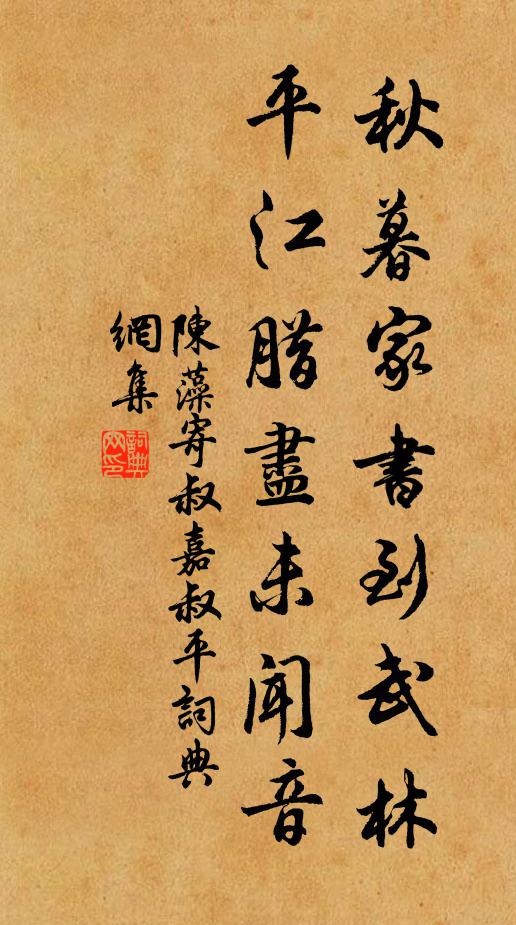 秋暮家書到武林
平江腊盡未聞音
陳藻寄叔嘉叔平詞典
網集
詞典
网印